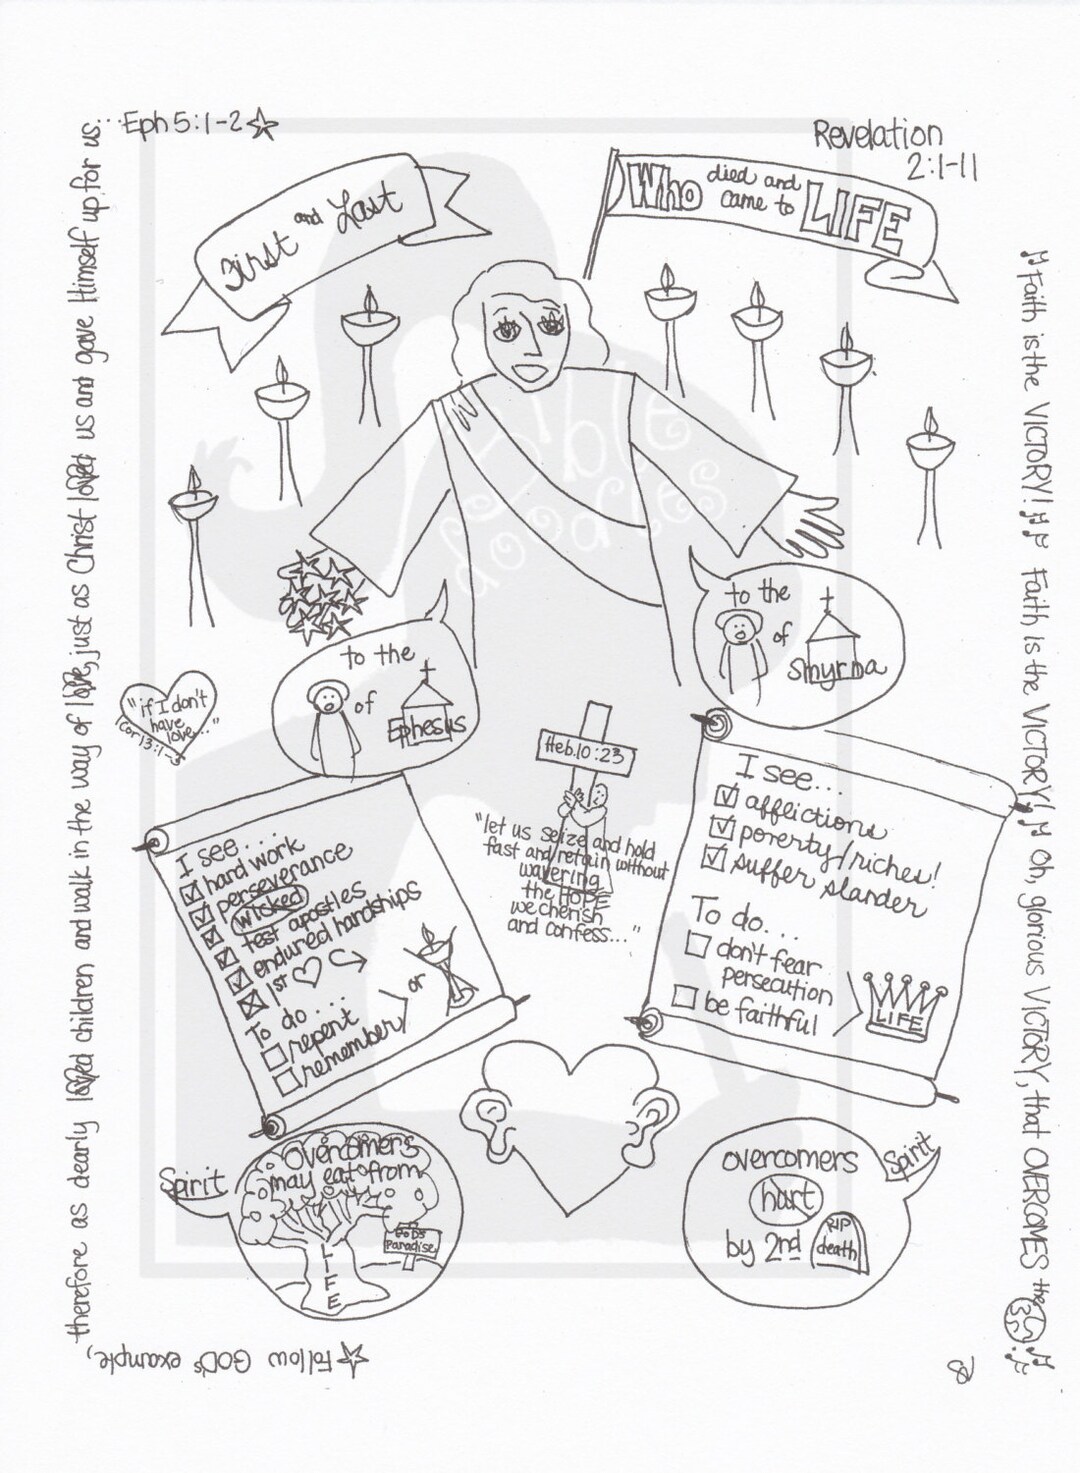 Eph 5:1-2
Revelation
2:1-11
First and Last
Who died and
came to LIFE
Bible
doodles
to the
of
Ephesus
to the
of
Smyrna
"if I don't
have
love..."
1 Cor 13:1
Heb. 10:23
"let us seize and hold
fast and retain without
wavering
the HOPE
we cherish
and confess..."
I see...
hard work
perseverance
wicked
test apostles
endured hardships
1st
To do...
repent
remember
or
I see...
afflictions
poverty/riches!
suffer slander
To do...
don't fear
persecution
be faithful
LIFE
Spirit
overcomers
may eat from
LIFE
GOD'S
Paradise
overcomers
hurt
by 2nd
RIP
death
Spirit
Follow GOD's example,
therefore as dearly loved children and walk in the way of love, just as Christ loved us and gave Himself up for us...
Faith is the VICTORY! Faith is the VICTORY! Oh, glorious VICTORY, that OVERCOMES the